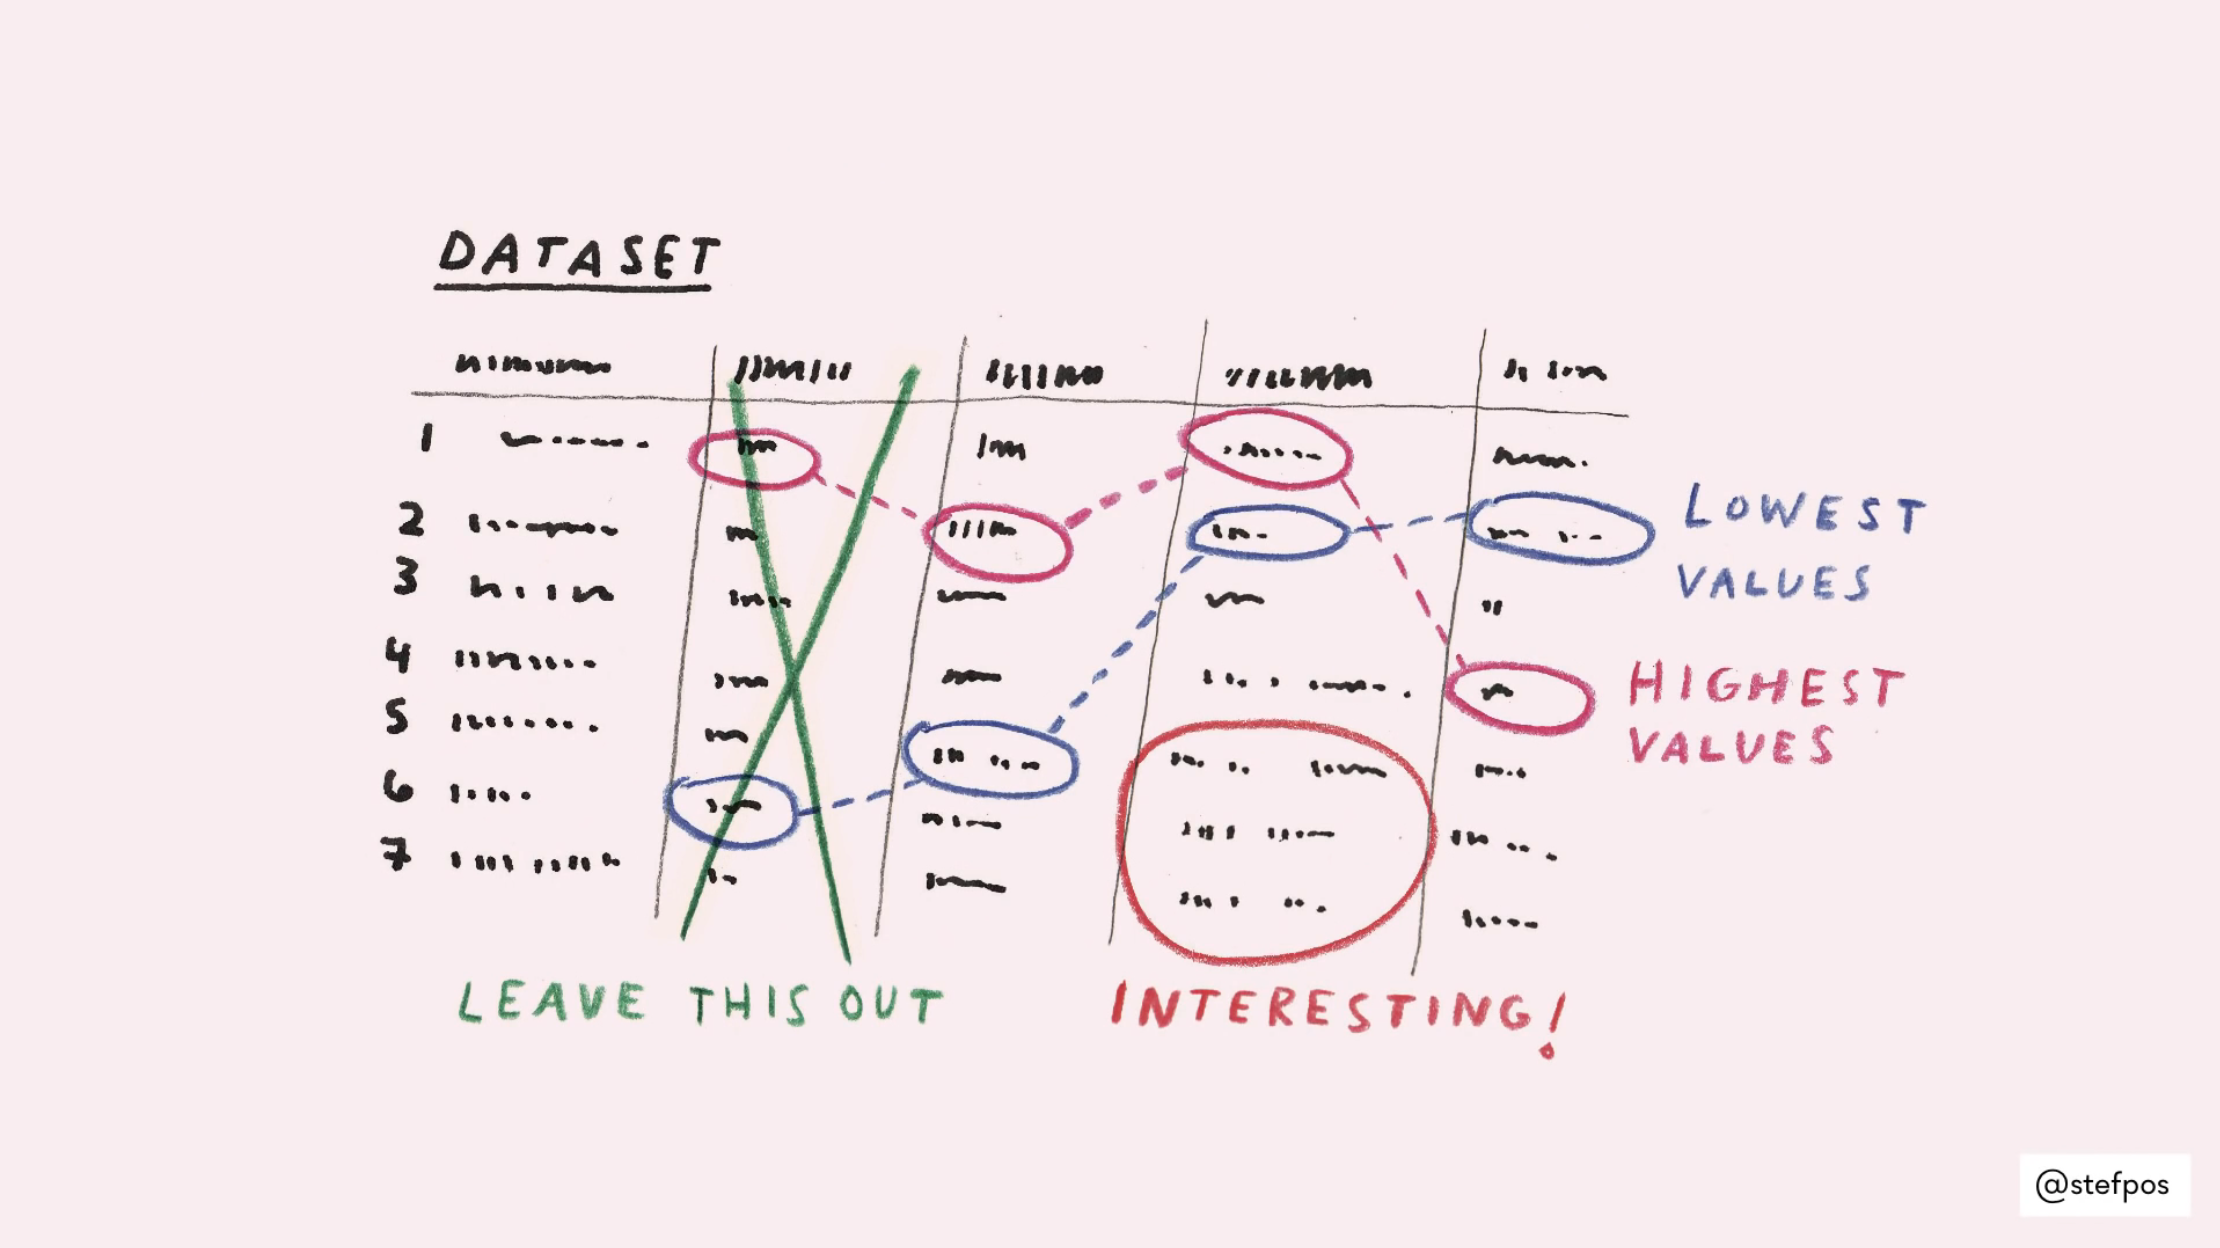 DATASET
1
2
3
4
5
6
7
LOWEST
VALUES
HIGHEST
VALUES
LEAVE THIS OUT
INTERESTING!
@stefpos